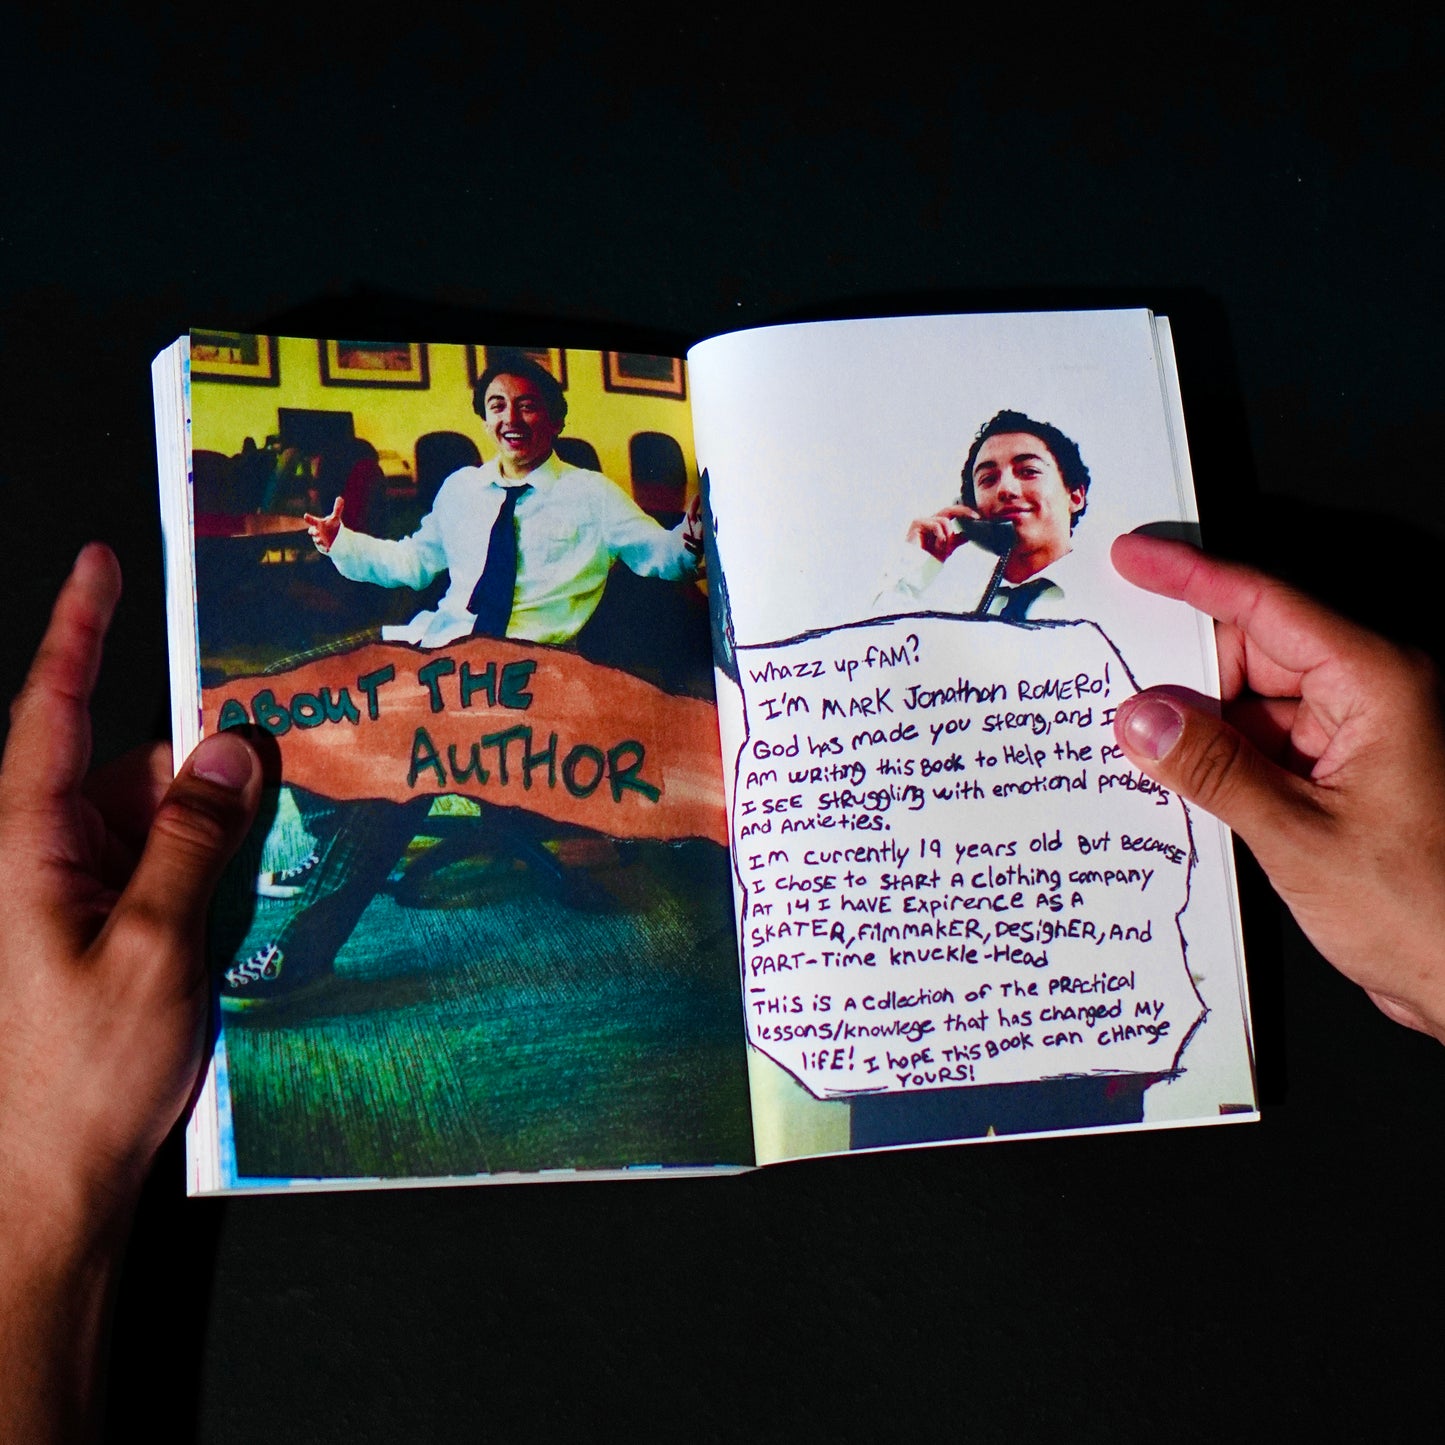 ABOUT THE
AUTHOR
whazz up fAM?
I'M MARK Jonathon ROMERO!
God has made you strong, and I
AM WRiting this Book to Help the pe
I SEE struggling with emotional problems
And Anxieties.
I'm currently 19 years old But BECAUSE
I CHOSE to StARt A clothing company
At 14 I hAVE Expirence AS A
SKATER, FilmmakER, DesighER, And
PART-Time knuckle-Head
THiS is A collection of The PRActical
lessons/knowlege that has changed My
lifE! I hopE This Book can CHAnge
YouRS!